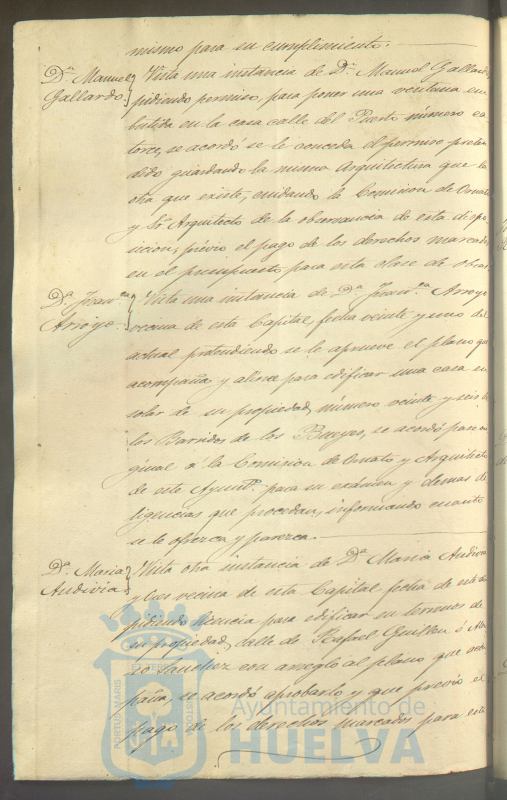 mismo para su cumplimiento.
Dn. Manuel Gallardo. Vista una instancia de Dn. Manuel Gallardo,
pidiendo permiso, para poner una ventana em
butida en la casa calle del Puerto número ca
torce, se acordó se le conceda el permiso preten
dido guardando la misma Arquitectura que la
otra que existe, cuidando la Comision de Ornato
y Sr. Arquitecto de la observancia de esta dispo
sicion, prévio el pago de los derechos marcados
en el presupuesto para esta clase de obras.
Da. Fran.ca Arroyo. Vista una instancia de Da. Fran.ca Arroyo
vecina de esta Capital fecha veinte y uno del
actual pretendiendo se le apruebe el plano que
acompaña y alinee para edificar una casa en
solar de su propiedad, número veinte y seis de
los Barridos de los Bueyes, se acordó pase ori
ginal á la Comision de Ornato y Arquitecto
de este Ayunto. para su exámen y demas di
ligencias que procedan, informando cuanto
se le ofrezca y parezca.
Da. Maria Andivia. Vista otra instancia de Da. Maria Andivia
y vecina de esta Capital fecha de este
pidiendo licencia para edificar en terrenos de
su propiedad, calle de Rafael Guillen ó
Sanchez con arreglo al plano que acom
paña, se acordó aprobarlo y que previo el
pago de los derechos marcados para esta
PORTUS MARIS
ET TERRE
CUSTODIA
Ayuntamiento de
HUELVA